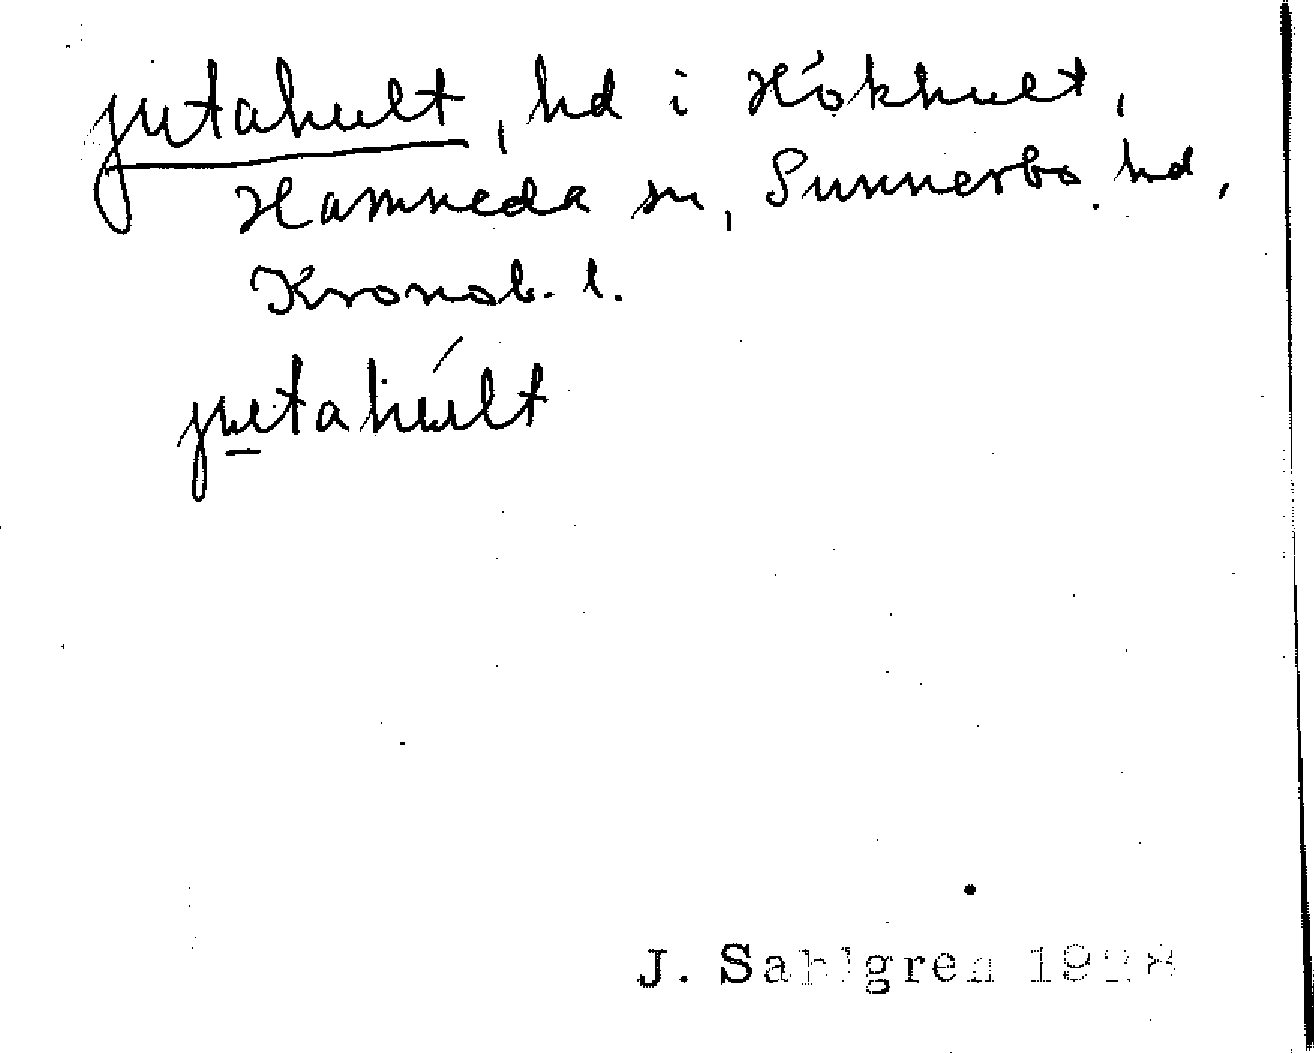 jutahult, hd i Hökhult,
Hamneda sn, Sunnerbo hd,
Kronob. l.
jutahult
J. Sahlgren